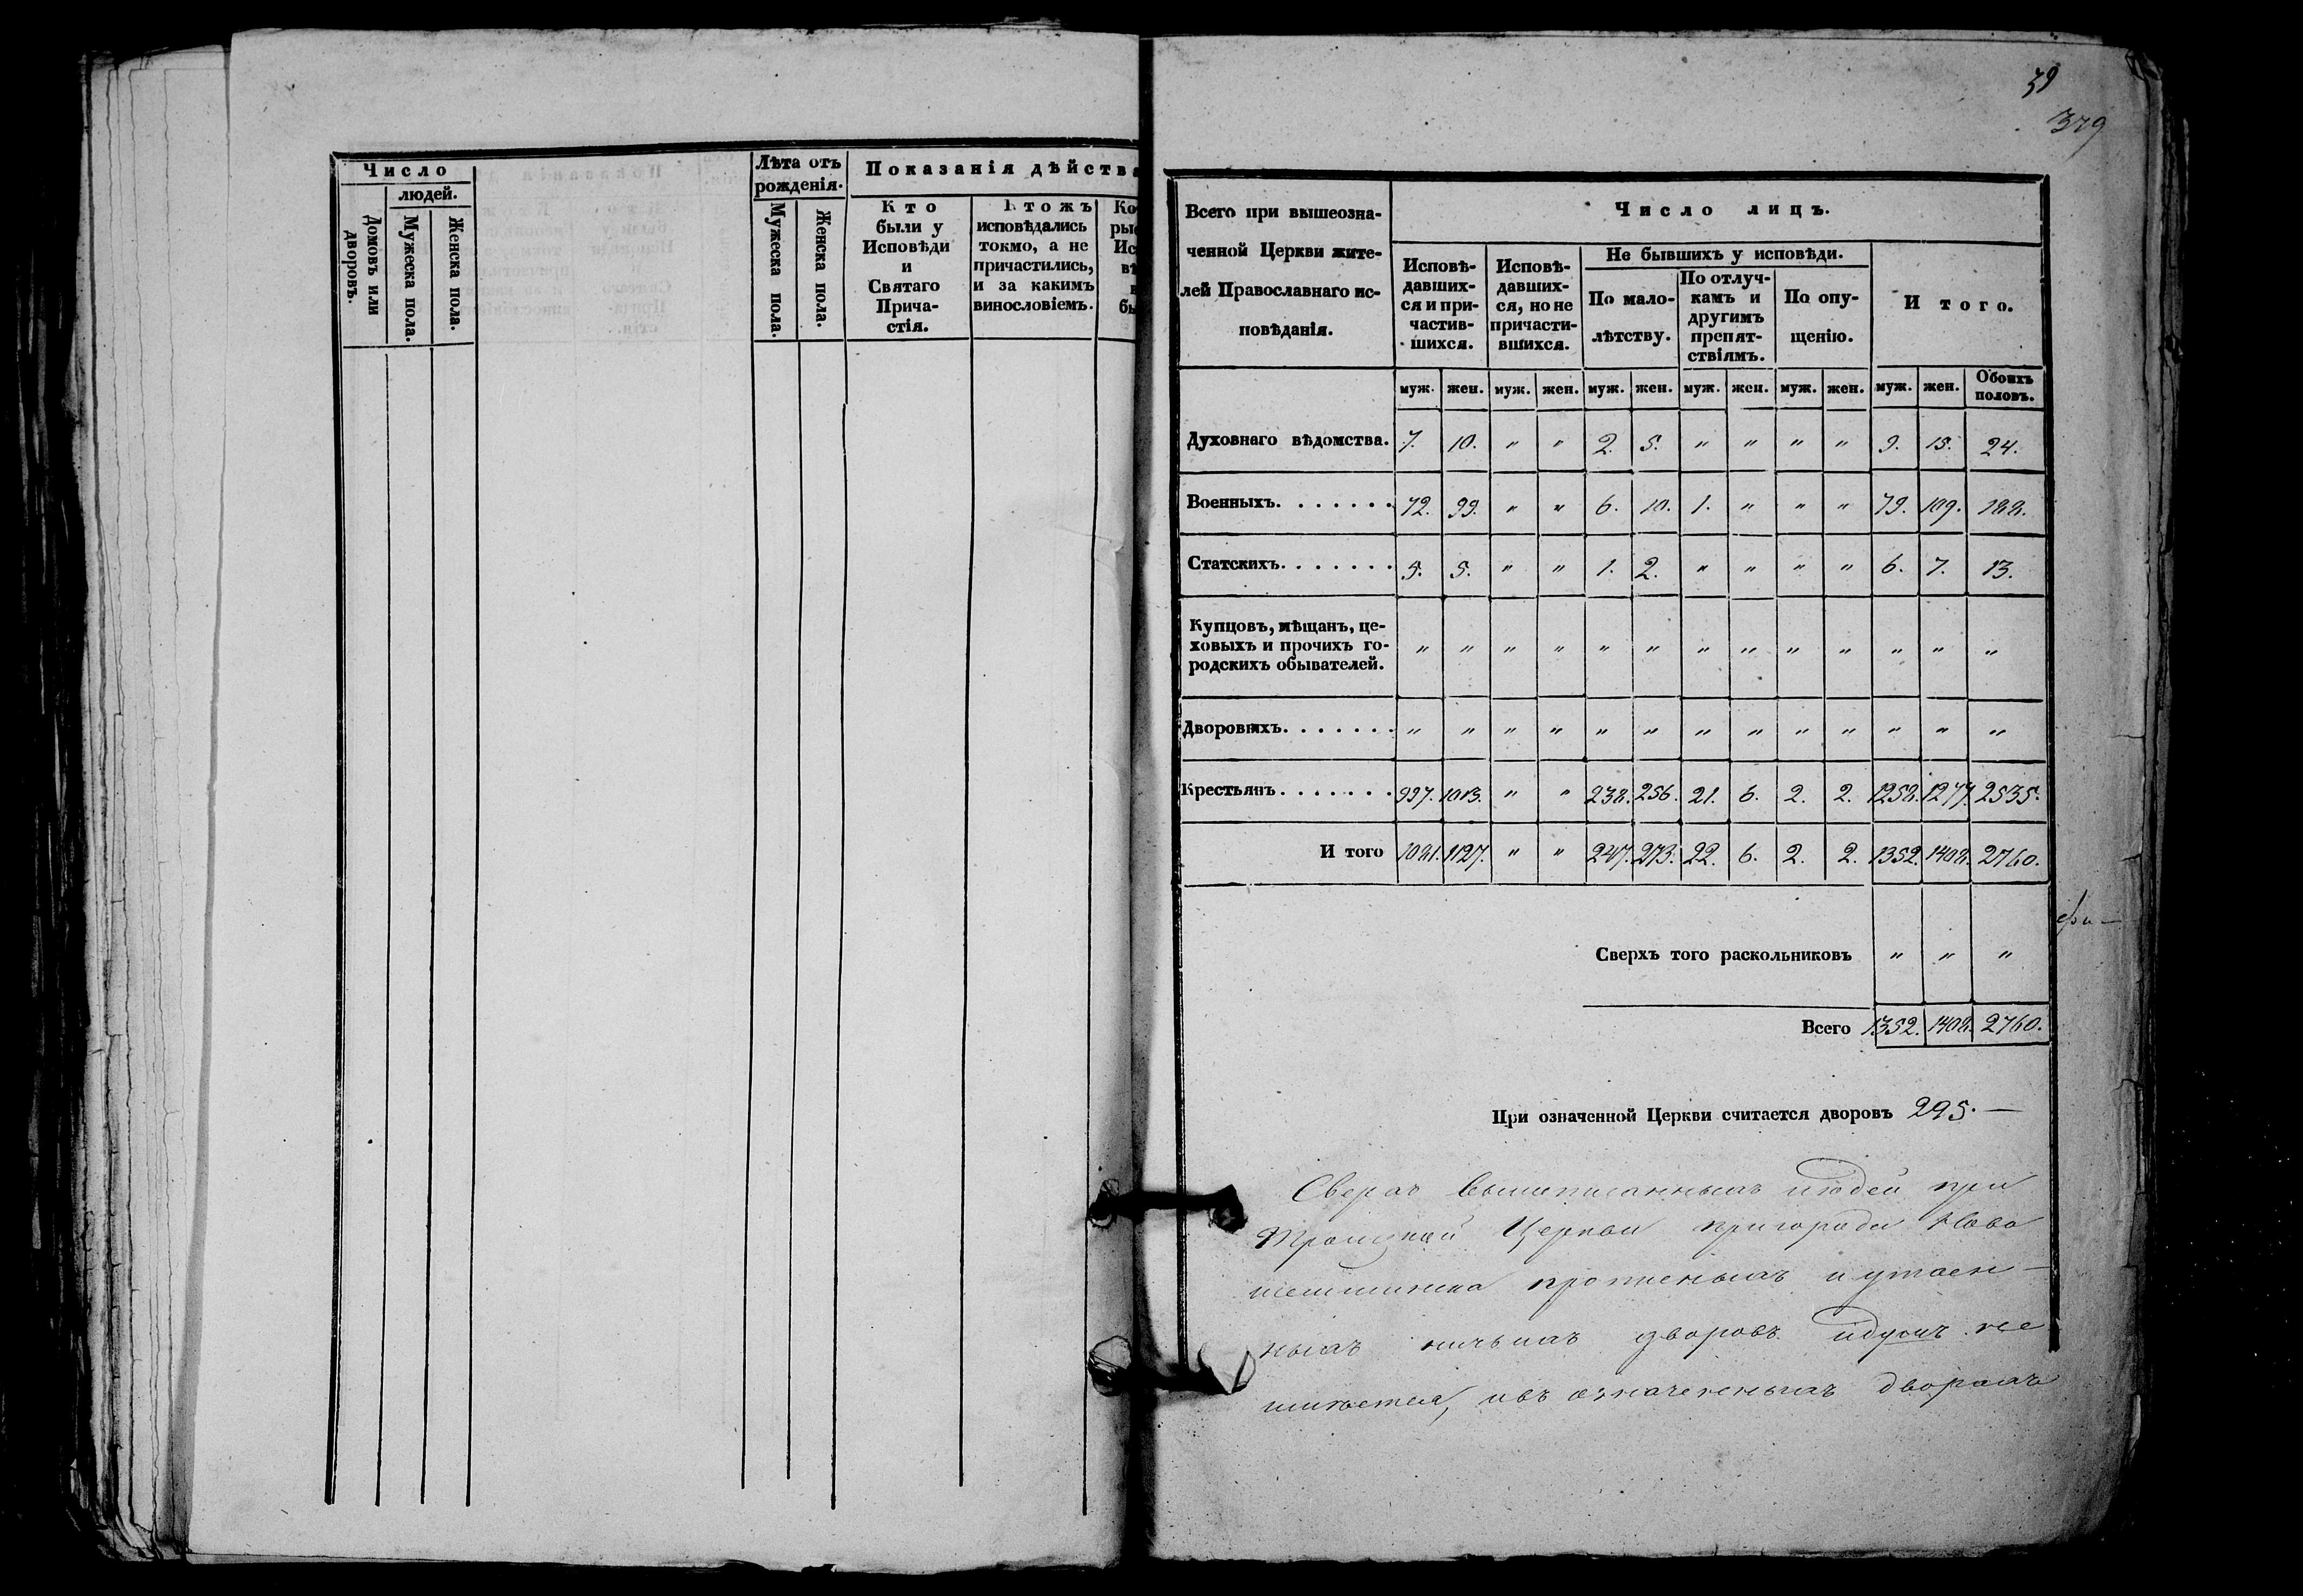 Число
людей.
Домовъ или дворовъ.
Мужеска пола.
Женска пола.
Лѣта отъ
рожденія.
Мужеска пола.
Женска пола.
Показанія дѣйства
Кто
были у
Исповѣди
и
Святаго
Прича-
стія.
Ктожъ
исповѣдались
токмо, а не
причастились,
и за какимъ
винословіемъ.
39
379
Всего при вышеозна-
ченной Церкви жите-
лей Православнаго ис-
повѣданія.
Число лицъ.
Исповѣ-
давших-
ся и при-
частив-
шихся.
Исповѣ-
давших-
ся, но не
причасти-
вшихся.
Не бывшихъ у исповѣди.
По мало-
лѣтству.
По отлуч-
камъ и
другимъ
препят-
ствіямъ.
По опу-
щенію.
Итого.
муж. жен. муж. жен. муж. жен. муж. жен. муж. жен. муж. жен. Обоихъ половъ.
Духовнаго вѣдомства. 7. 10. " " 2. 5. " " " " 9. 15. 24.
Военныхъ. . . . . . . 72. 99. " " 6. 10. 1. " " " 79. 109. 188.
Статскихъ. . . . . . . 5. 5. " " 1. 2. " " " " 6. 7. 13.
Купцовъ, мѣщанъ, це-
ховыхъ и прочихъ го-
родскихъ обывателей. " " " " " " " " " " " " "
Дворовыхъ. . . . . . . " " " " " " " " " " " " "
Крестьянъ. . . . . . . 997. 1013. " " 238. 256. 21. 6. 2. 2. 1258. 1277. 2535.
И того 1081. 1127. " " 247. 273. 22. 6. 2. 2. 1352. 1408. 2760.
Сверхъ того раскольниковъ " " "
Всего 1352. 1408. 2760.
При означенной Церкви считается дворовъ 295. —
Сверхъ вышеписанныхъ людей при
Троицкой Церкви пригорода Ново
шешминска прописныхъ и утаен-
ныхъ ничьихъ дворовъ идушъ не
имѣется, и въ означенныхъ дворахъ